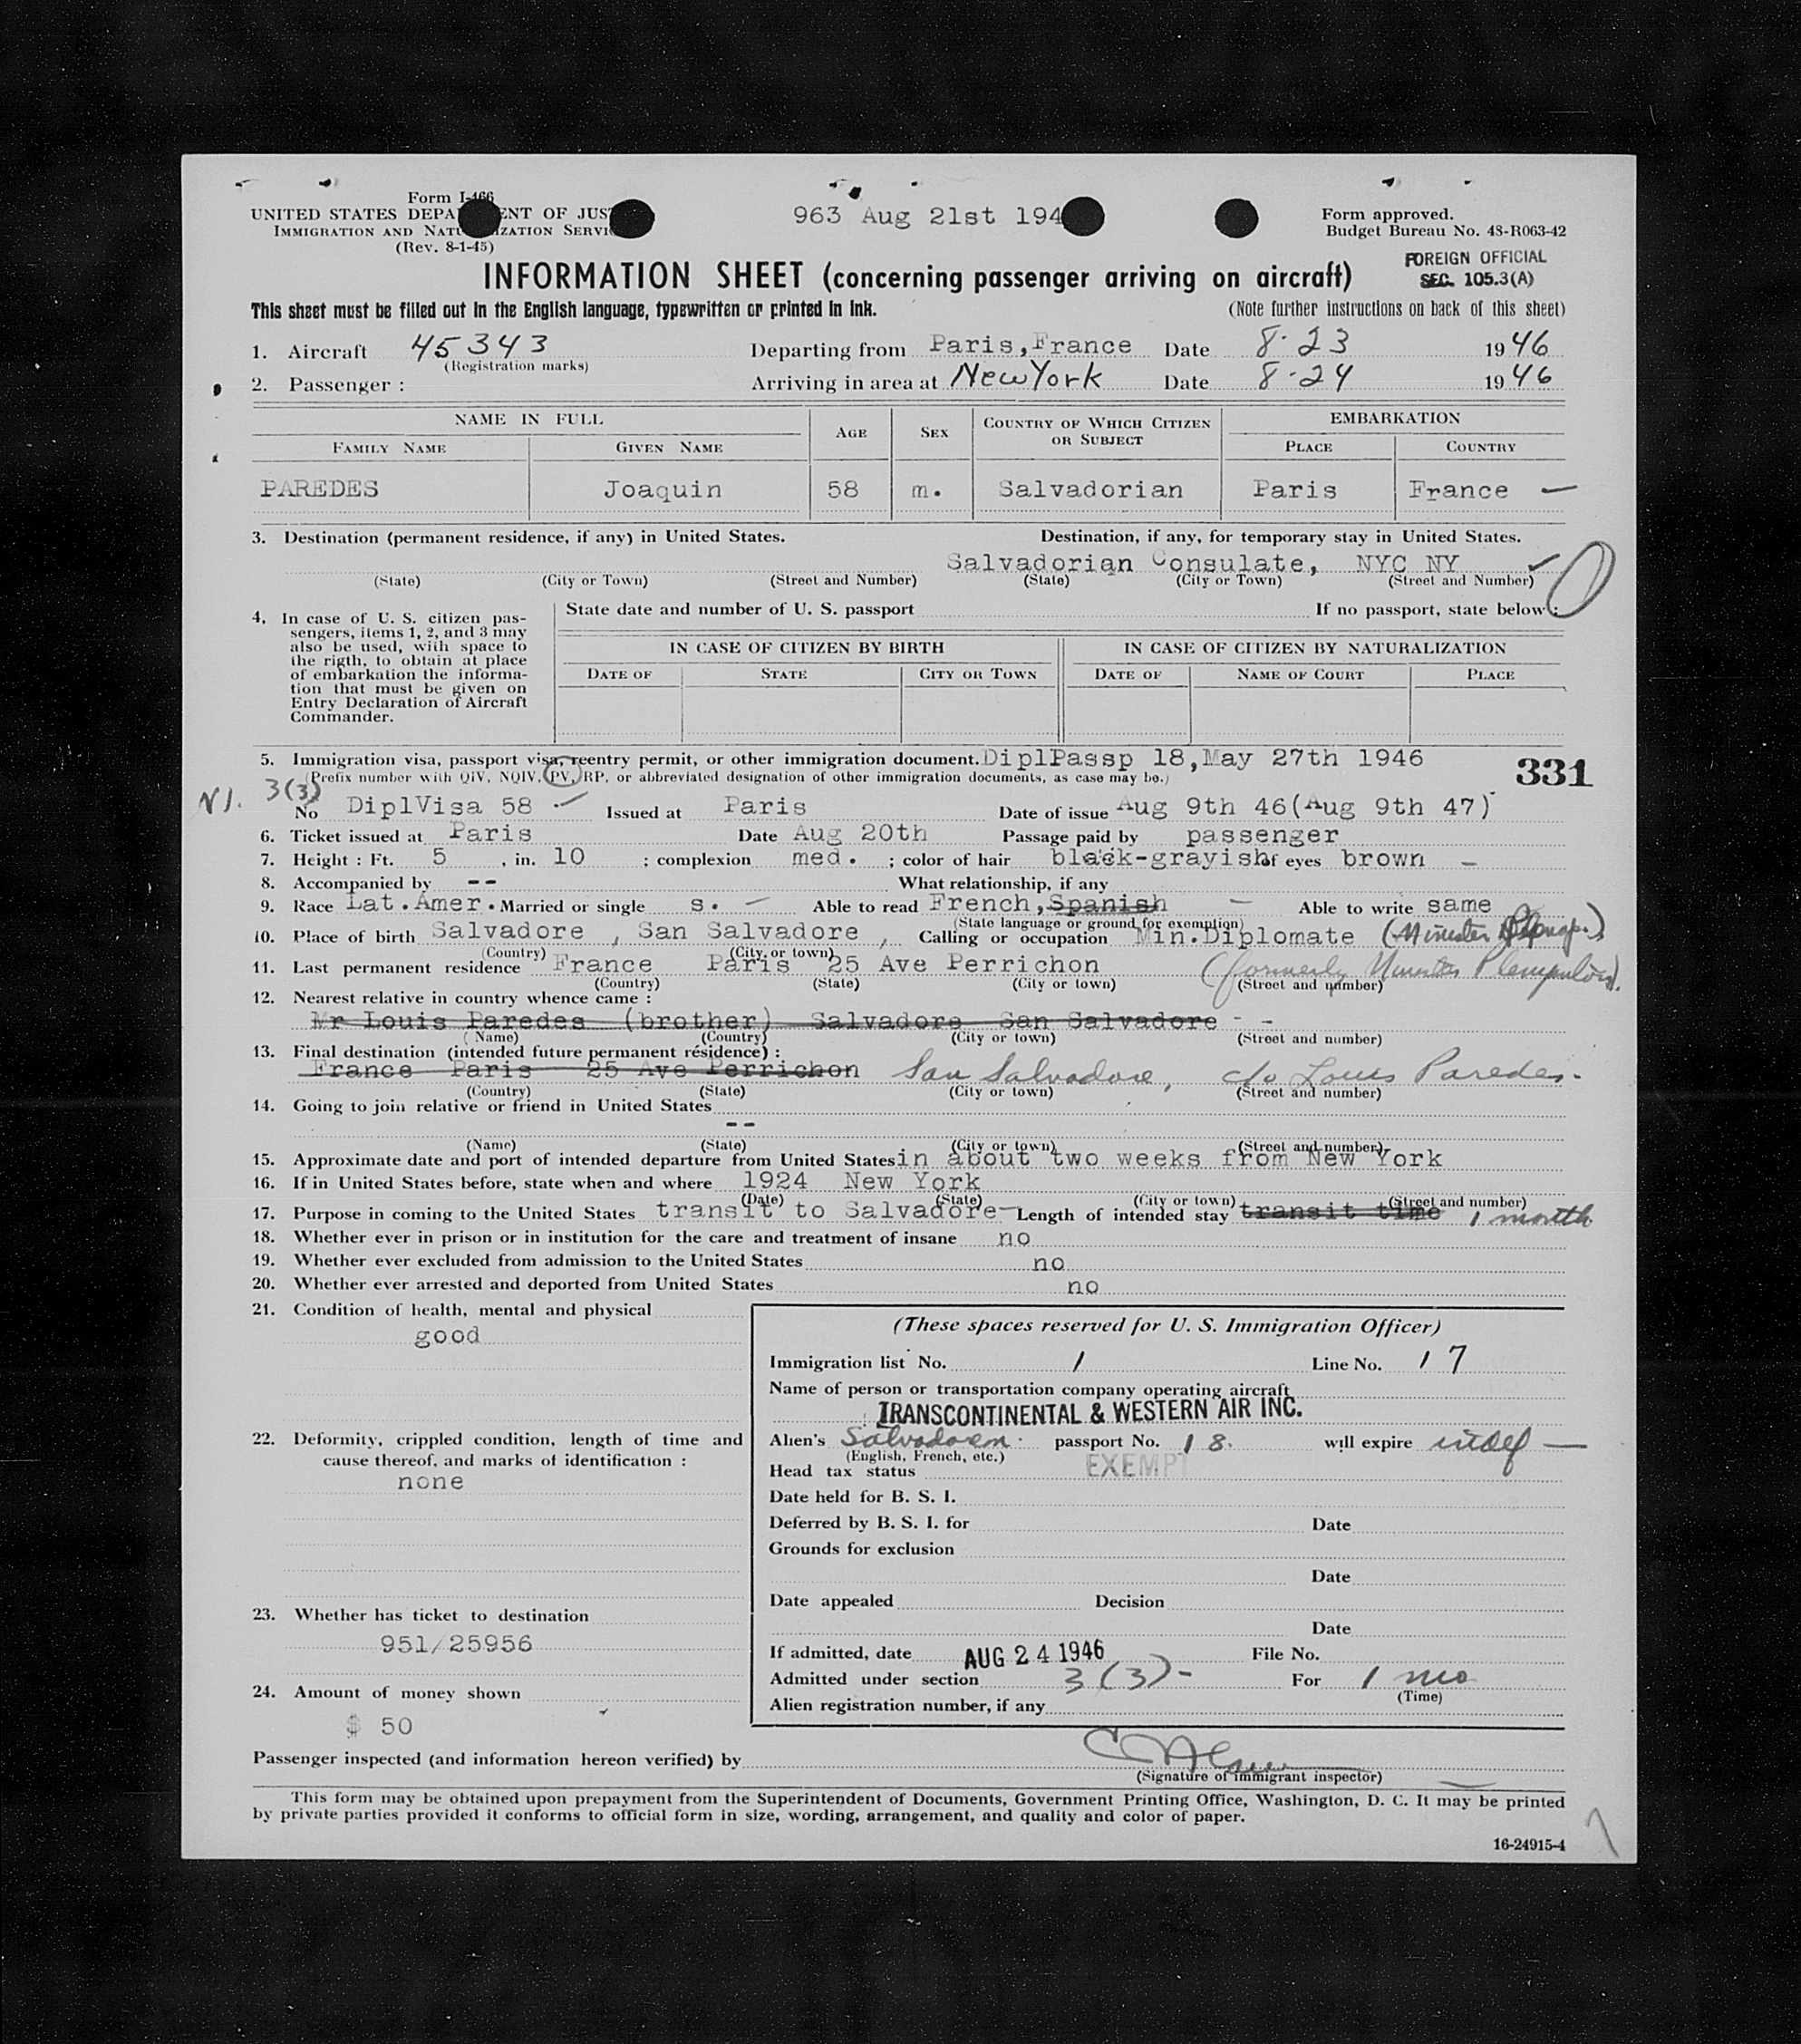 Form I-466
UNITED STATES DEPA ENT OF JUS
IMMIGRATION AND NATU IZATION SERVI
(Rev. 8-1-45)
963 Aug 21st 194
Form approved.
Budget Bureau No. 48-R063-42
FOREIGN OFFICIAL
SEC. 105.3(A)
INFORMATION SHEET (concerning passenger arriving on aircraft)
This sheet must be filled out in the English language, typewritten or printed in ink. (Note further instructions on back of this sheet)
1. Aircraft 45343 Departing from Paris, France Date 8-23 1946
(Registration marks)
2. Passenger : Arriving in area at New York Date 8-24 1946
NAME IN FULL AGE SEX COUNTRY OF WHICH CITIZEN OR SUBJECT EMBARKATION
FAMILY NAME GIVEN NAME PLACE COUNTRY
PAREDES Joaquin 58 m. Salvadorian Paris France —
3. Destination (permanent residence, if any) in United States. Destination, if any, for temporary stay in United States.
Salvadorian Consulate, NYC NY
(State) (City or Town) (Street and Number) (State) (City or Town) (Street and Number)
4. In case of U. S. citizen pas-
sengers, items 1, 2, and 3 may
also be used, wiih space to
the rigth, to obtain at place
of embarkation the informa-
tion that must be given on
Entry Declaration of Aircraft
Commander.
State date and number of U. S. passport If no passport, state below :
IN CASE OF CITIZEN BY BIRTH IN CASE OF CITIZEN BY NATURALIZATION
DATE OF STATE CITY OR TOWN DATE OF NAME OF COURT PLACE
5. Immigration visa, passport visa, reentry permit, or other immigration document. DiplPassp 18, May 27th 1946
(Prefix number with QIV, NQIV, PV, RP, or abbreviated designation of other immigration documents, as case may be.)
331
3(3)
No DiplVisa 58 Issued at Paris Date of issue Aug 9th 46(Aug 9th 47)
6. Ticket issued at Paris Date Aug 20th Passage paid by passenger
7. Height : Ft. 5 , in. 10 ; complexion med. ; color of hair black-grayish of eyes brown —
8. Accompanied by -- What relationship, if any
9. Race Lat.Amer. Married or single s. — Able to read French, Spanish — Able to write same
(State language or ground for exemption)
10. Place of birth Salvadore , San Salvadore , Calling or occupation Min.Diplomate (Minister
(Country) (City or town)
11. Last permanent residence France Paris 25 Ave Perrichon (formerly Minister
(Country) (State) (City or town) (Street and number)
12. Nearest relative in country whence came :
Mr Louis Paredes (brother) Salvadore San Salvadore - -
(Name) (Country) (City or town) (Street and number)
13. Final destination (intended future permanent résidence) :
France Paris 25 Ave Perrichon San Salvadore, c/o Louis Paredes.
(Country) (State) (City or town) (Street and number)
14. Going to join relative or friend in United States
--
(Name) (State) (City or town) (Street and number)
15. Approximate date and port of intended departure from United States in about two weeks from New York
16. If in United States before, state when and where 1924 New York
(Date) (State) (City or town) (Street and number)
17. Purpose in coming to the United States transit to Salvadore — Length of intended stay transit time 1 month
18. Whether ever in prison or in institution for the care and treatment of insane no
19. Whether ever excluded from admission to the United States no
20. Whether ever arrested and deported from United States no
21. Condition of health, mental and physical
good
22. Deformity, crippled condition, length of time and
cause thereof, and marks of identification :
none
23. Whether has ticket to destination
951/25956
24. Amount of money shown
$ 50
(These spaces reserved for U. S. Immigration Officer)
Immigration list No. 1 Line No. 17
Name of person or transportation company operating aircraft
TRANSCONTINENTAL & WESTERN AIR INC.
Alien's passport No. 18. will expire indef —
(English, French, etc.)
Head tax status EXEMPT
Date held for B. S. I.
Deferred by B. S. I. for Date
Grounds for exclusion
Date
Date appealed Decision
Date
If admitted, date AUG 24 1946 File No.
Admitted under section 3(3)- For 1 mo
(Time)
Alien registration number, if any
Passenger inspected (and information hereon verified) by
(Signature of immigrant inspector)
This form may be obtained upon prepayment from the Superintendent of Documents, Government Printing Office, Washington, D. C. It may be printed
by private parties provided it conforms to official form in size, wording, arrangement, and quality and color of paper.
16-24915-4